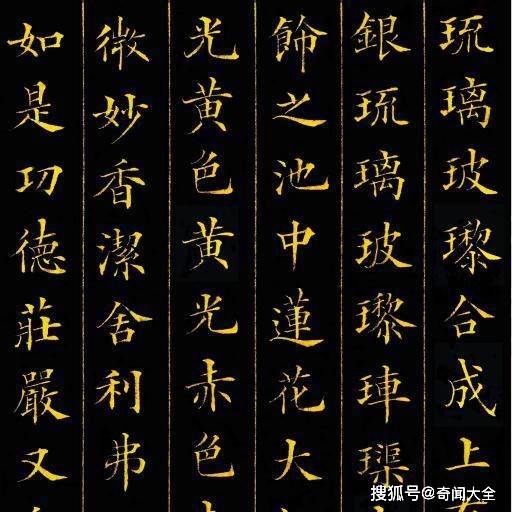 琉璃玻瓈合成上
銀琉璃玻瓈璖
飾之池中蓮花大
光黄色黄光赤色
微妙香潔舍利弗
如是功德莊嚴又
搜狐号@奇闻大全